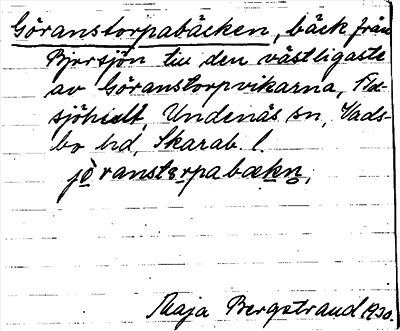 Göranstorpabäcken, bäck från
Bjersjön till den västligaste
av Göranstorpvikarna,
Undenäs sn, Vads-
bo hd, Skarab. l.
jöranstɘrpabækn,
Maja Bergstrand 1930.